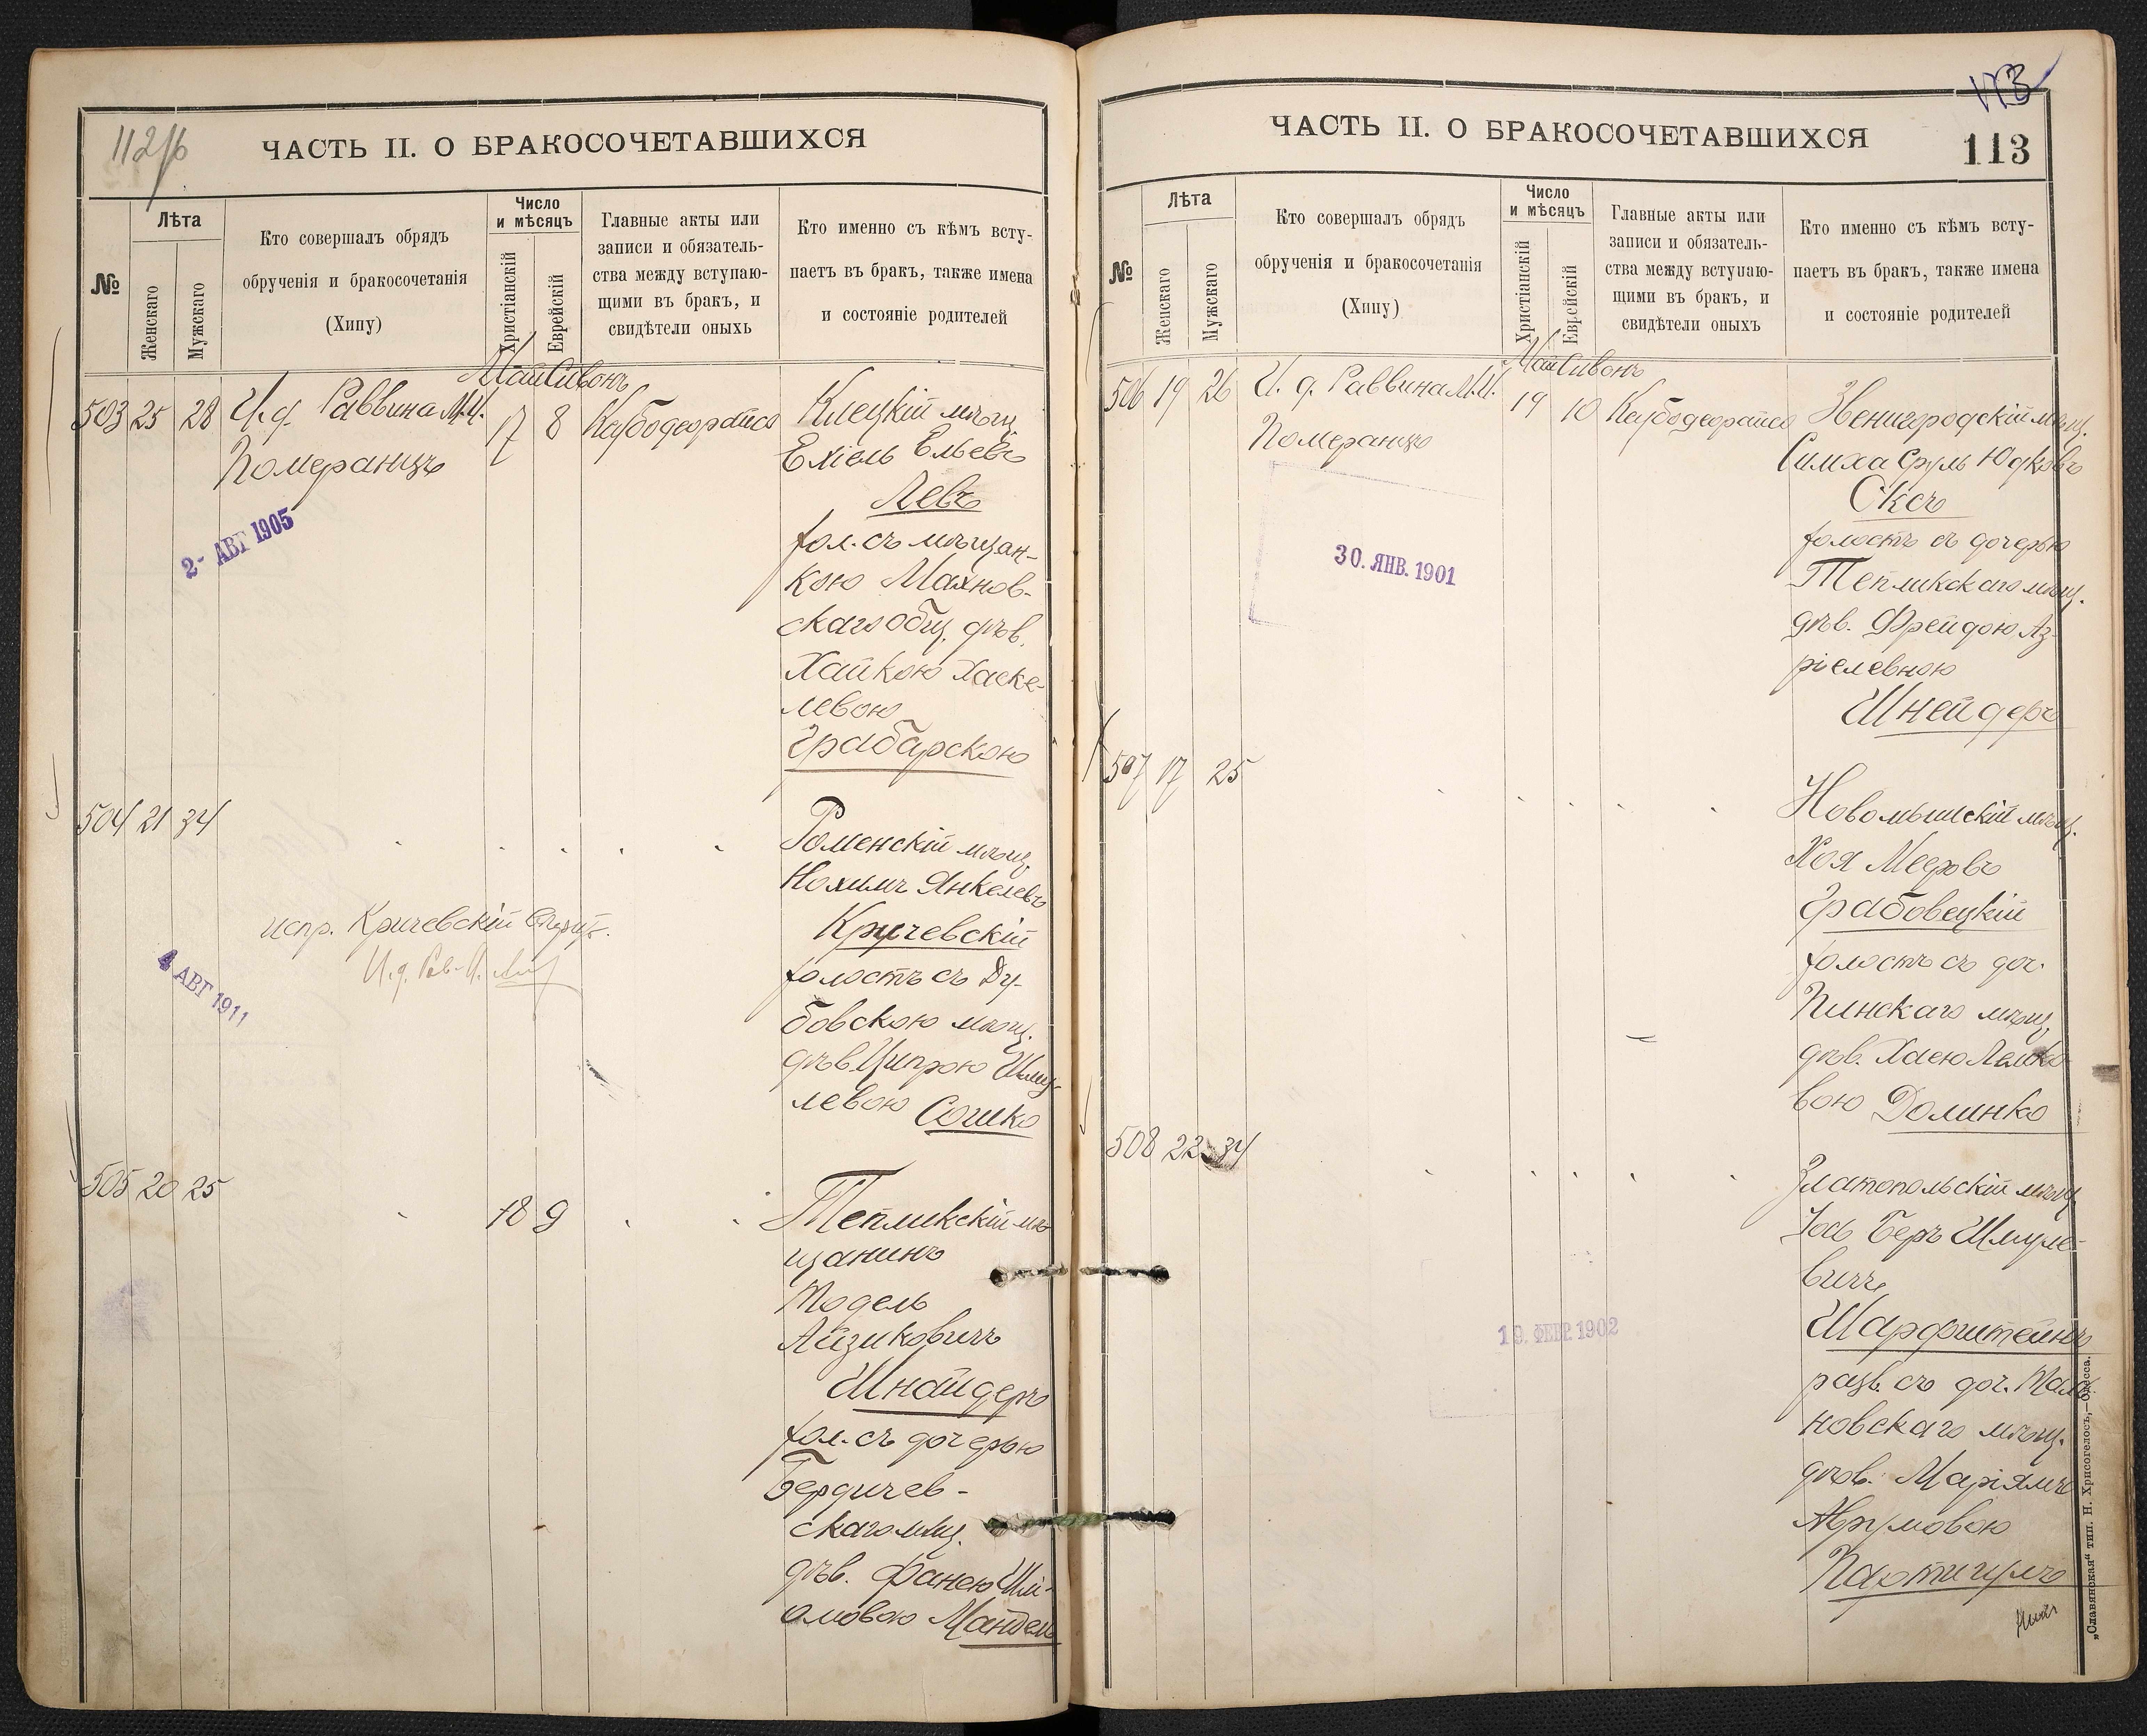 112/б
ЧАСТЬ II. О БРАКОСОЧЕТАВШИХСЯ
№
Лѣта
Женскаго
Мужскаго
Кто совершалъ обрядъ
обрученія и бракосочетанія
(Хипу)
Число
и мѣсяцъ
Христіанскій
Еврейскій
Главные акты или
записи и обязатель-
ства между вступаю-
щими въ бракъ, и
свидѣтели оныхъ
Кто именно съ кѣмъ всту-
паетъ въ бракъ, также имена
и состояніе родителей
Май Сивонъ
503 25 28 И.д. Раввина М.И. 17 8 Каубодеорайса
Померанцъ
Клецкій мѣщ.
Ехіель Ельевъ
Левъ
хол. съ мѣщан-
кою Махнов-
скаго общ. дѣв.
Хайкою Хаске-
левою
Грабарскою
2- АВГ 1905
504 21 34
Роменскій мѣщ.
Нохимъ Янкелевъ
Кричевскій
холостъ съ Ду-
бовскою мѣщ.
дѣв. Ципрою Шму-
левою Сошко
испр. Кричевскій
И.д. Рав.
4 АВГ 1911
505 20 25 18 9
Тепликскій мѣ-
щанинъ
Тодель
Айзиковичъ
Шнайдеръ
хол. съ дочерью
Бердичев-
скаго мѣщ.
дѣв. Фанею Шли-
омовою Мандель
113
ЧАСТЬ II. О БРАКОСОЧЕТАВШИХСЯ
113
№
Лѣта
Женскаго
Мужскаго
Кто совершалъ обрядъ
обрученія и бракосочетанія
(Хипу)
Число
и мѣсяцъ
Христіанскій
Еврейскій
Главные акты или
записи и обязатель-
ства между вступаю-
щими въ бракъ, и
свидѣтели оныхъ
Кто именно съ кѣмъ всту-
паетъ въ бракъ, также имена
и состояніе родителей
Май Сивонъ
506 19 26 И. д. Раввина М.И. 19 10 Каубодеорайса
Померанцъ
Звенигородскій мѣщ.
Симха Сруль Юдковъ
Оксъ
холостъ съ дочерью
Тепликскаго мѣщ.
дѣв. Фрейдою Аз-
ріелевною
Шнейдеръ
30. ЯНВ. 1901
507 17 25
Новомышскій мѣщ.
Хоя Мееровъ
Грабовецкій
холостъ съ доч.
Пинскаго мѣщ.
дѣв. Хаею
вою Долинко
508 22 34
Златопольскій мѣщ.
Іось Беръ Шмуле-
вичъ
Шарфштейнъ
разв. съ доч.
новскаго мѣщ.
дѣв. Маріямъ
Аврумовою
Партигулъ
19. ФЕВР. 1902
„Славянская“ тип. Н. Хрисогелосъ,—Одесса.